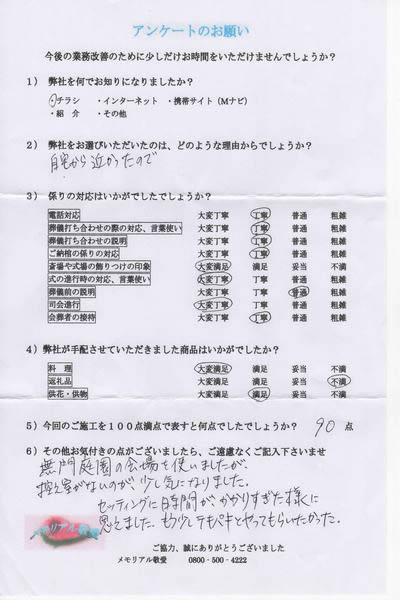 アンケートのお願い
今後の業務改善のために少しだけお時間をいただけませんでしょうか?
1) 弊社を何でお知りになりましたか?
・チラシ ・インターネット ・携帯サイト(Mナビ)
・紹 介 ・その他
2) 弊社をお選びいただいたのは、どのような理由からでしょうか?
自宅から近かったので
3) 係りの対応はいかがでしたでしょうか?
電話対応 大変丁寧 丁寧 普通 粗雑
葬儀打ち合わせの際の対応、言葉使い 大変丁寧 丁寧 普通 粗雑
葬儀打ち合わせの説明 大変丁寧 丁寧 普通 粗雑
ご納棺の係りの対応 大変丁寧 丁寧 普通 粗雑
斎場や式場の飾りつけの印象 大変満足 満足 妥当 不満
式の進行時の対応、言葉使い 大変丁寧 丁寧 普通 粗雑
葬儀前の説明 大変丁寧 丁寧 普通 粗雑
司会進行 大変丁寧 丁寧 普通 粗雑
会葬者の接待 大変丁寧 丁寧 普通 粗雑
4) 弊社が手配させていただきました商品はいかがでしたか?
料 理 大変満足 満足 妥当 不満
返礼品 大変満足 満足 妥当 不満
供花・供物 大変満足 満足 妥当 不満
5) 今回のご施工を100点満点で表すと何点でしたでしょうか? 90 点
6) その他お気付きの点がございましたら、ご遠慮なくご記入下さいませ
無門庭園の会場を使いましたが、
控え室がないのが、少し気になりました。
セッティングに時間が、かかりすぎた様に
思えました。もう少しテキパキとやってもらいたかった。
メモリアル敬愛
ご協力、誠にありがとうございました
メモリアル敬愛 0800-500-4222